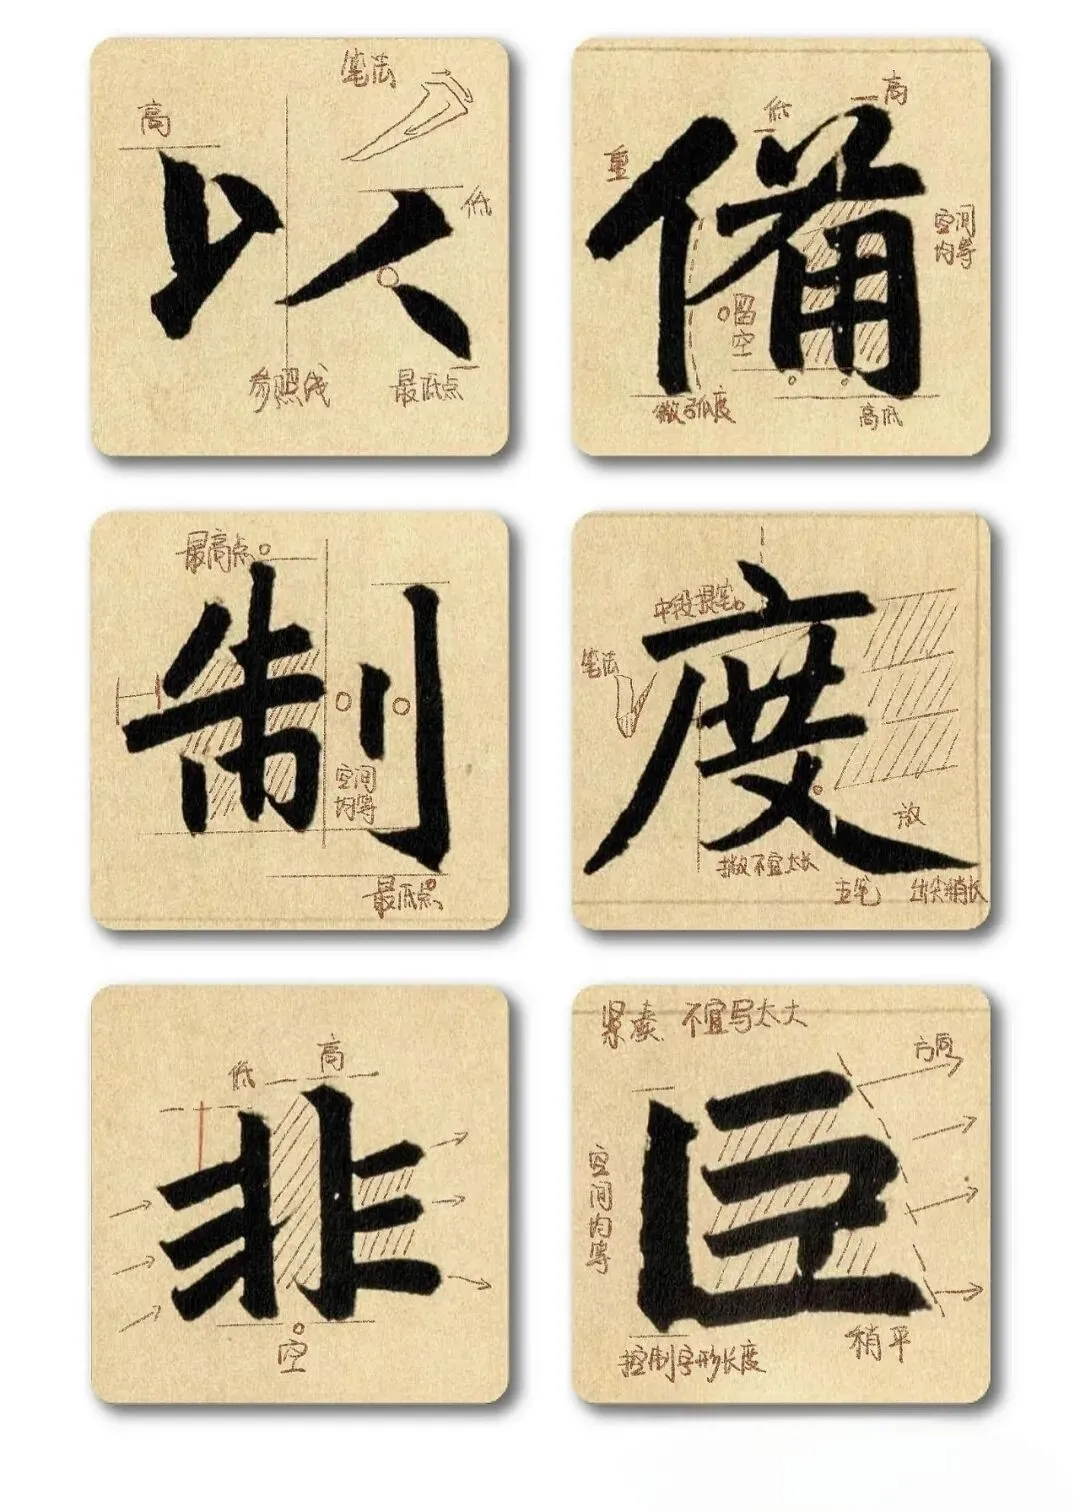 笔法
高
以
低
参照线
最低点
高
低
重
備
空间
均等
留
空
微弧度
高低
最高点
制
空间
均等
最低点
中段提笔
笔法
度
放
撇不宜太长
主笔
出尖稍长
高
低
非
空
紧凑 不宜写太大
方向
臣
空
间
均
等
稍平
控制字形长度